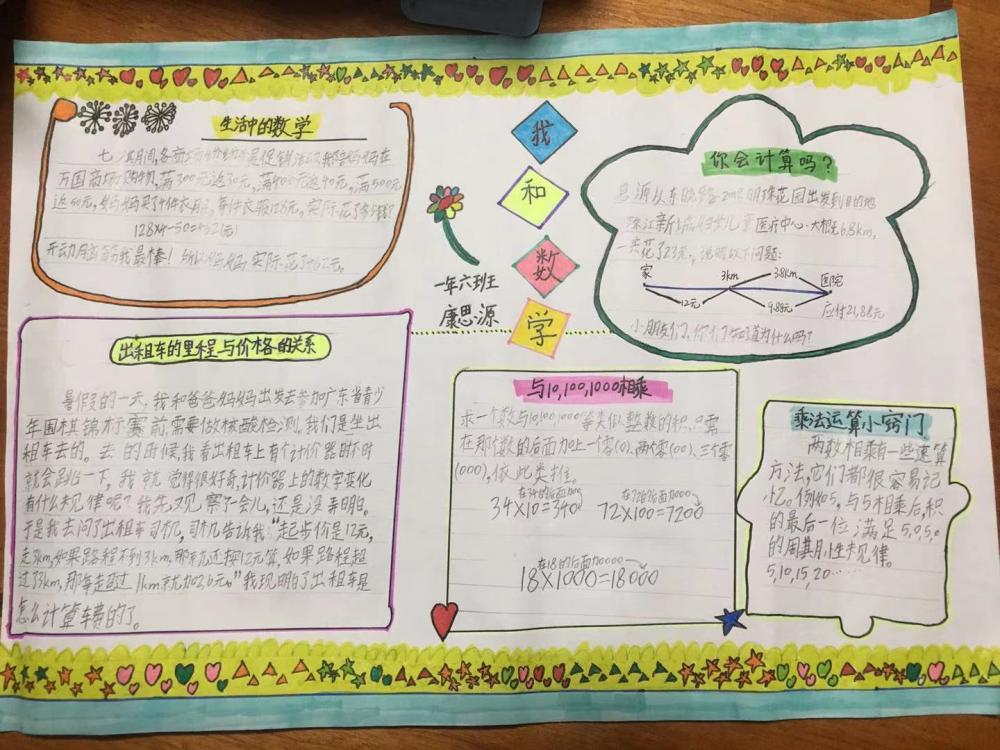 生活中的数学
七、八月间,各商场纷纷开展促销活动,我陪妈妈在
万国商场购物,满300元返30元,满400元返40元,满500元
返50元,妈妈买了4件衣服,每件衣服128元,实际花了多少钱?
128×4-50=462(元)
开动脑筋我最棒!所以妈妈实际花了462元。
我
和
数
学
一年六班
康思源
你会计算吗?
思源从东晓路 明珠花园出发到目的地
珠江新城妇女儿童医疗中心·大概6.8km,
一共花了23元,说明以下问题:
家 3km 3.8km 医院
12元 9.88元 应付21.88元
小朋友们,你们知道为什么吗?
出租车的里程与价格的关系
暑假的一天,我和爸爸妈妈出发去参加广东省青少
年围棋锦标赛前,需要做核酸检测。我们是坐出
租车去的。去的时候,我看出租车上有个计价器时不时
就会跳一下,我就觉得很好奇,计价器上的数字变化
有什么规律呢?我先观察了会儿,还是没弄明白。
于是我去问了出租车司机,司机告诉我:“起步价是12元,
走3km,如果路程不到3km,那就还按12元算,如果路程超
过了3km,那每走过1km就加2.6元。”我现明白了出租车是
怎么计算车费的了。
与10,100,1000相乘
求一个数与10,100,1000等类似整数的积,只需
在那个数的后面加上一个零(0)、两个零(00)、三个零
(000),依此类推。
在34的后面加0 在72的后面加00
34×10=340 72×100=7200
在18的后面加000
18×1000=18000
乘法运算小窍门
两数相乘有一些速算
方法,它们都很容易记
忆。例如5,与5相乘后,积
的最后一位满足5,0,5,0
的周期性规律。
5,10,15,20……